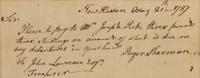 New Haven May 21st 1787
Sir
Please to pay to Mr Joseph Rode three pounds
three shillings on account of what is due on
my debenture in your hands
Roger Sherman
To John Lawrence Esqr
Treasurer